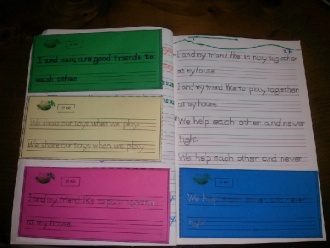 I and              are good friends to
each other
We share our toys when we play.
We share our toys when we play.
I and my friend like to play together
at my house.
I and my friend like to play together
at my house.
I and my friend like to play together
at my house.
We help each other and never
fight.
We help each other and never
We help each other and never